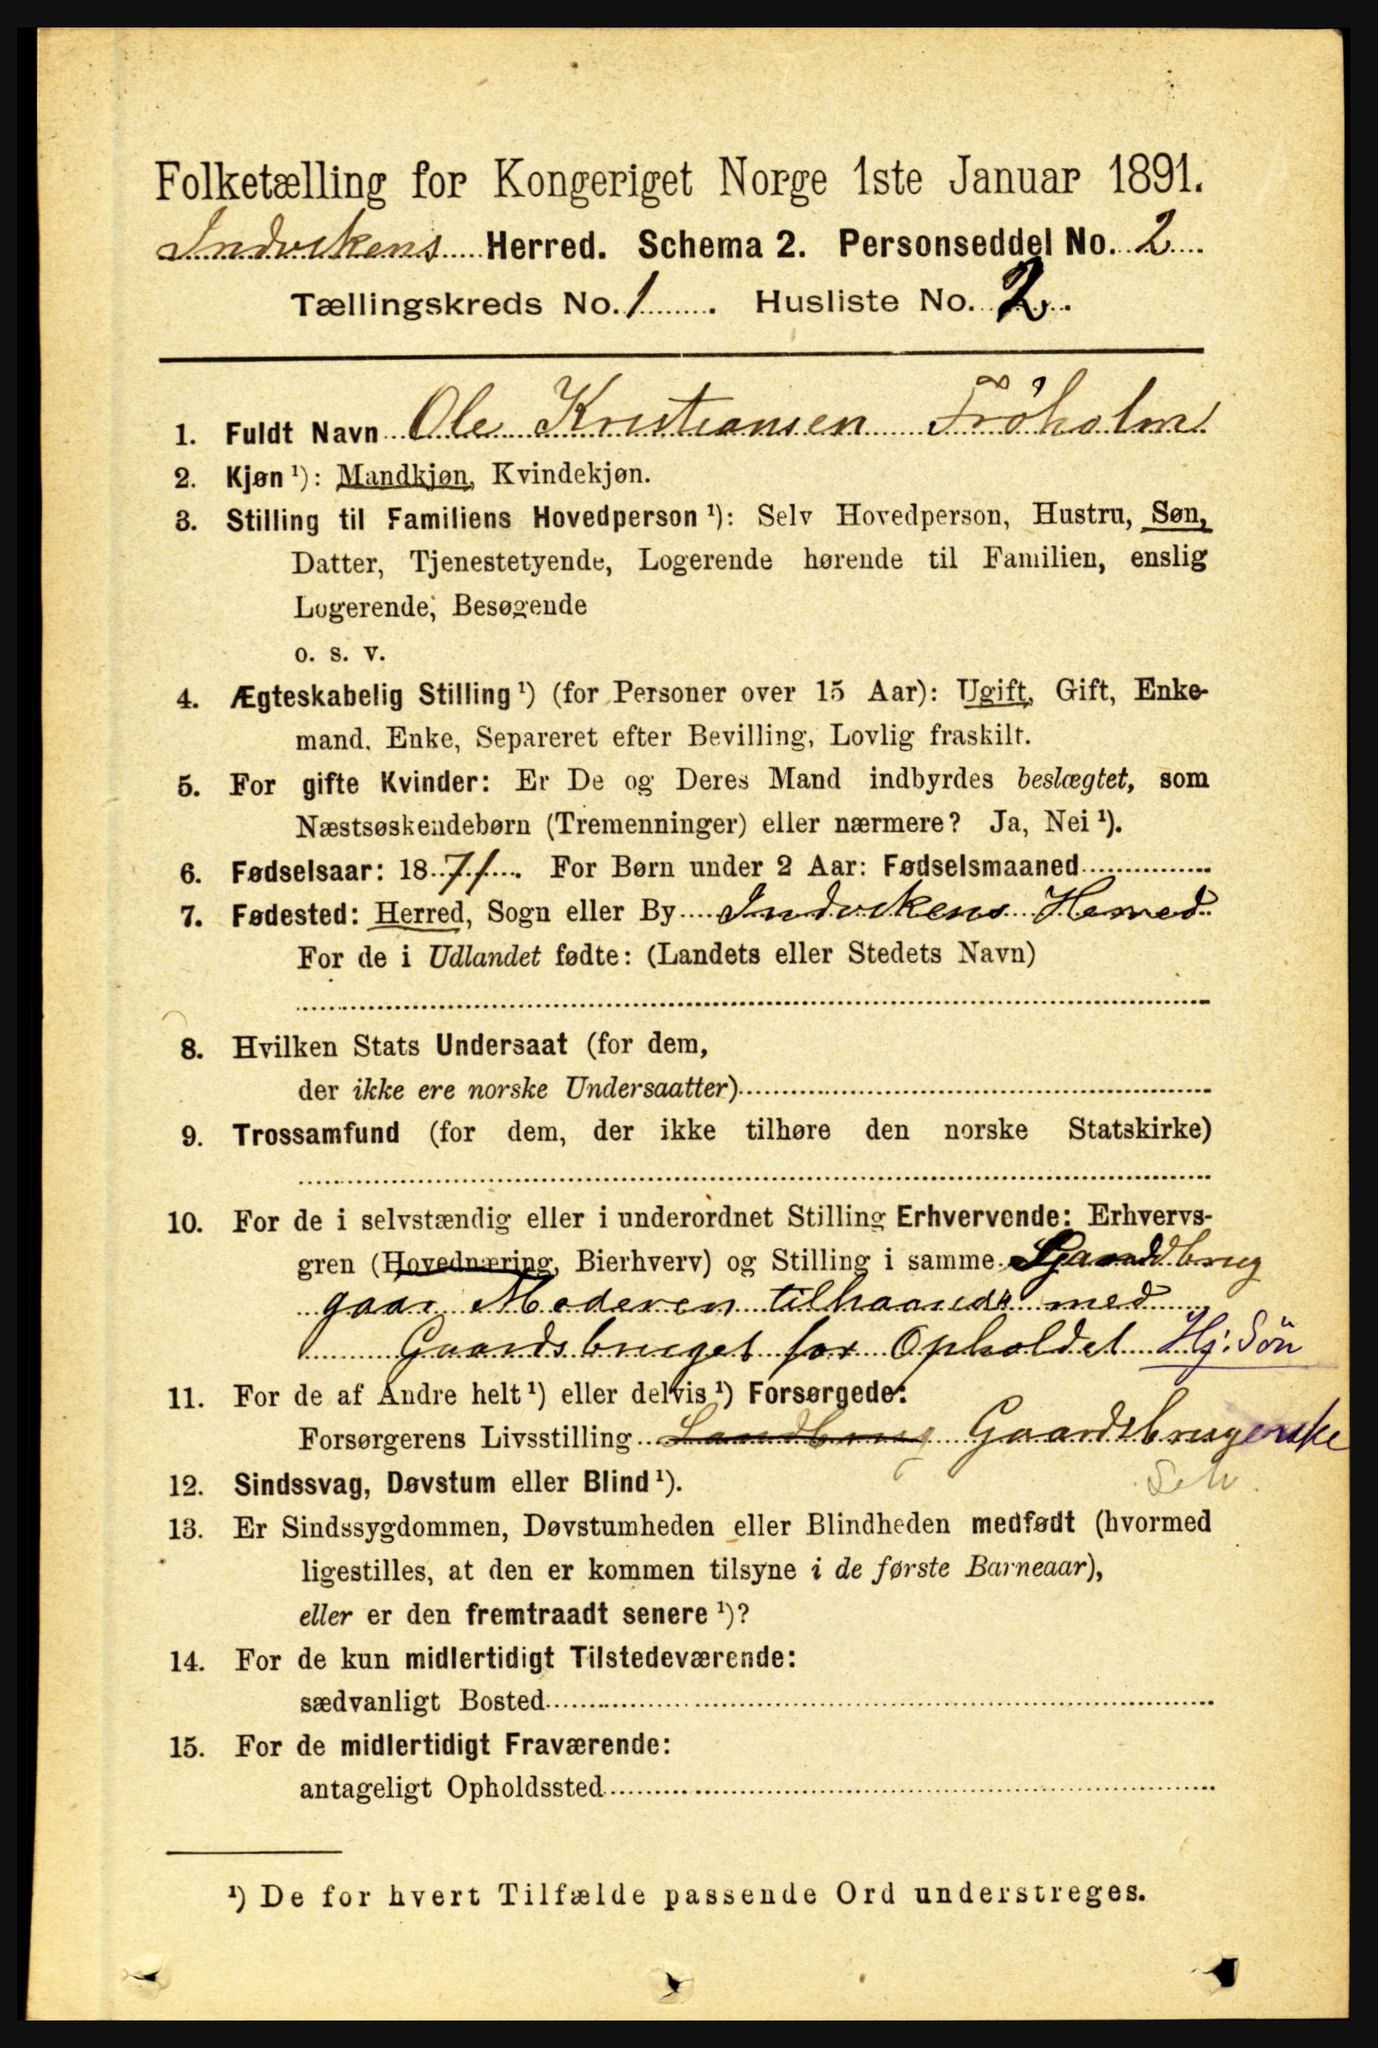 Folketælling for Kongeriget Norge 1ste Januar 1891.
Indvikens Herred. Schema 2. Personseddel No. 2
Tællingskreds No. 1. Husliste No. 2.
1. Fuldt Navn Ole Kristiansen Frøholm
2. Kjøn ¹): Mandkjøn, Kvindekjøn.
3. Stilling til Familiens Hovedperson ¹): Selv Hovedperson, Hustru, Søn,
Datter, Tjenestetyende, Logerende hørende til Familien, enslig
Logerende, Besøgende
o. s. v.
4. Ægteskabelig Stilling ¹) (for Personer over 15 Aar): Ugift, Gift, Enke-
mand, Enke, Separeret efter Bevilling, Lovlig fraskilt.
5. For gifte Kvinder: Er De og Deres Mand indbyrdes beslægtet, som
Næstsøskendebørn (Tremenninger) eller nærmere? Ja, Nei ¹).
6. Fødselsaar: 1871. For Børn under 2 Aar: Fødselsmaaned
7. Fødested: Herred, Sogn eller By Indvikens Herred
For de i Udlandet fødte: (Landets eller Stedets Navn)
8. Hvilken Stats Undersaat (for dem,
der ikke ere norske Undersaatter)
9. Trossamfund (for dem, der ikke tilhøre den norske Statskirke)
10. For de i selvstændig eller i underordnet Stilling Erhvervende: Erhvervs-
gren (Hovednæring, Bierhverv) og Stilling i samme
gaar Moderen tilhaande med
Gaardsbruget for Opholdet Hj. Søn
11. For de af Andre helt ¹) eller delvis ¹) Forsørgede:
Forsørgerens Livsstilling Landbrug Gaardsbrugerske
12. Sindssvag, Døvstum eller Blind ¹).
13. Er Sindssygdommen, Døvstumheden eller Blindheden medfødt (hvormed
ligestilles, at den er kommen tilsyne i de første Barneaar),
eller er den fremtraadt senere ¹)?
14. For de kun midlertidigt Tilstedeværende:
sædvanligt Bosted
15. For de midlertidigt Fraværende:
antageligt Opholdssted
¹) De for hvert Tilfælde passende Ord understreges.